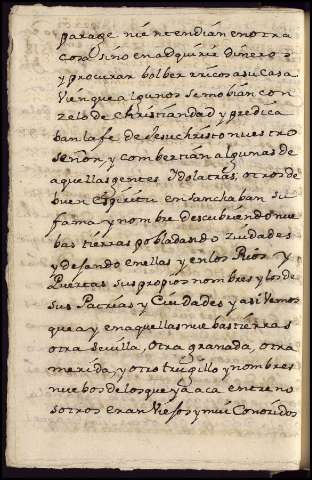 parage ni entendian en otra
cosa sino en adquirir dineros
y procurar bolber rricos a su Casa
Vien que algunos se mobian con
Zelo de Christiandad y predica
ban la fe de Jesuchristo nuestro
Señor, y combertian algunas de
aquellas gentes Idolatras, otros de
buen Espiritu ensanchaban su
fama y nombre descubriendo nue
bas tierras pobladando Ziudades
y dejando en ellas y en los Rios y
Puertos sus propios nombres y los de
sus Patrias y Ciudades y asi Vemos
que ay en aquellas nuebas tierras
otra Sevilla, Otra granada, otra
merida, y otro trugillo y nombres
nuebos de los que ya aca entre no
sotros eran Viejos y mui Conocidos